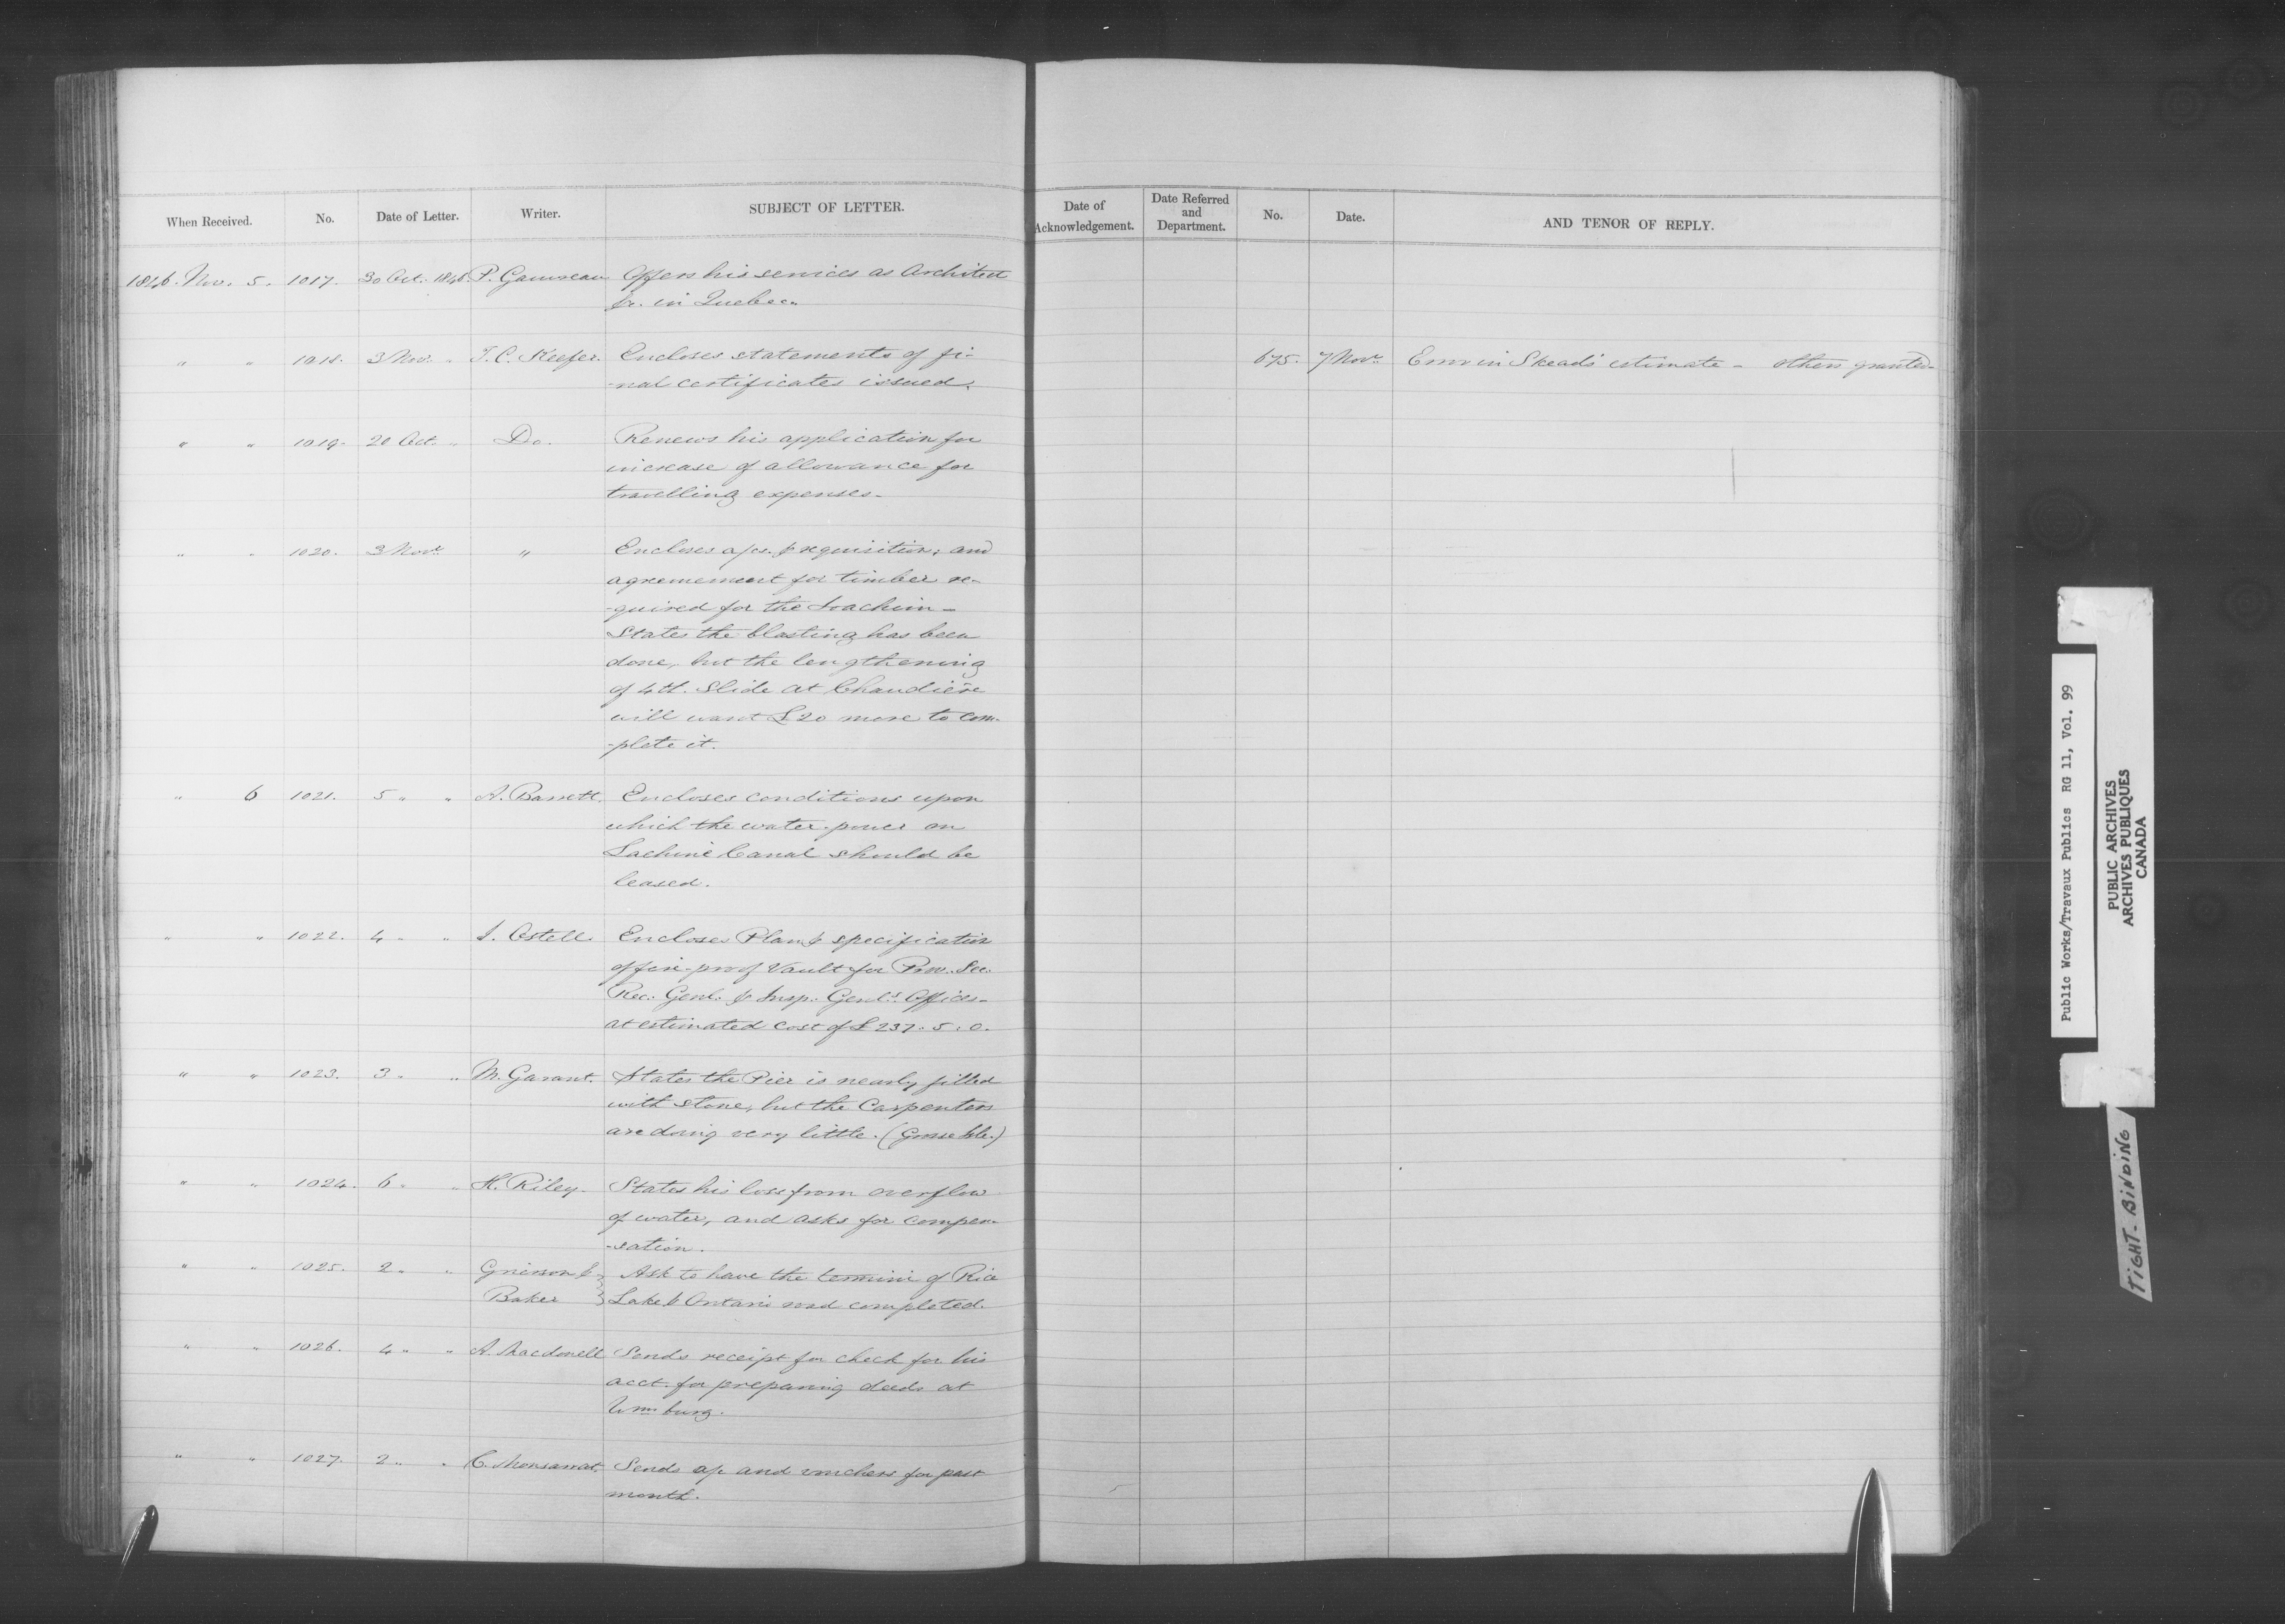 When Received. No. Date of Letter. Writer. SUBJECT OF LETTER. Date of Acknowledgement. Date Referred and Department. No. Date. AND TENOR OF REPLY.
1846. Nov. 5. 1017. 30 Oct. 1846. P. Gauvreau Offers his services as Architect
&c. in Quebec.
" " 1018. 3 Nov. " T. C. Keefer. Encloses statements of fi- 675. 7 Novr. Error in Skead's estimate - others granted-
-nal certificates issued.
" " 1019. 20 Oct. " Do. Renews his application for
increase of allowance for
travelling expenses-
" " 1020. 3 Novr. " Encloses a/cs. & requisition, and
agreemement for timber re-
-quired for the Joachim-
States the blasting has been
done, but the lengthening
of 4th. Slide at Chaudière
will want £20 more to com-
-plete it.
" 6 1021. 5 " " A. Barrett. Encloses conditions upon
which the water-power on
Lachine Canal should be
leased.
" " 1022. 4 " " J. Ostell. Encloses Plan & specification
of fire-proof Vault for Prov. Sec.
Rec. Genl. & Insp. Genl's Offices-
at estimated cost of £237.5.0.
" " 1023. 3 " " M. Garant. States the Pier is nearly filled
with stone, but the Carpenters
are doing very little. (Grosse Isle.)
" " 1024. 6 " " H. Riley. States his loss from overflow
of water, and asks for compen-
-sation.
" " 1025. 2 " " Grierson & Ask to have the termini of Rice
Baker Lake & Ontario road completed.
" " 1026. 4 " " A. Macdonell Sends receipt for check for his
acct. for preparing deeds at
Wmsburg.
" " 1027. 2 " " C. Monsarrat. Sends a/c and vouchers for past
month.
Public Works/Travaux Publics RG 11, Vol. 99
PUBLIC ARCHIVES
ARCHIVES PUBLIQUES
CANADA
TIGHT-BINDING